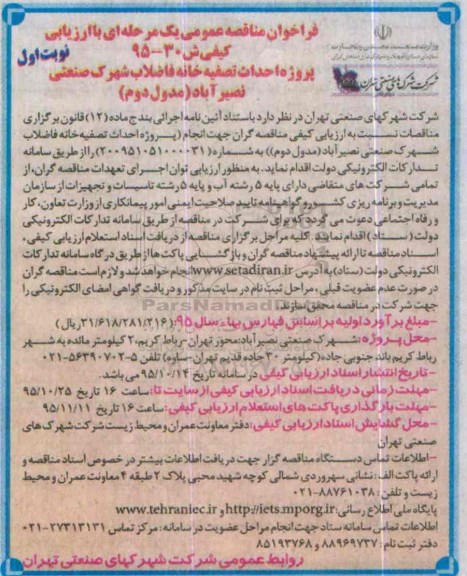 فراخوان مناقصه عمومی یک مرحله ای با ارزیابی
کیفی ش ۳۰-۹۵
نوبت اول
پروژه احداث تصفیه خانه فاضلاب شهرک صنعتی
نصیرآباد (مدول دوم)
شرکت شهرکهای صنعتی تهران
شرکت شهرکهای صنعتی تهران در نظر دارد باستناد آئین نامه اجرائی بند ج ماده (۱۲) قانون برگزاری
مناقصات نسبت به ارزیابی کیفی مناقصه گران جهت انجام (پروژه احداث تصفیه خانه فاضلاب
شهرک صنعتی نصیرآباد (مدول دوم)) به شماره (۲۰۰۹۵۱۰۵۱۰۰۰۰۳۱) را از طریق سامانه
تدارکات الکترونیکی دولت اقدام نماید. به منظور ارزیابی توان اجرای تعهدات مناقصه گران، از
تمامی شرکت های متقاضی دارای پایه ۵ رشته آب و پایه ۵ رشته تاسیسات و تجهیزات از سازمان
مدیریت و برنامه ریزی کشور و گواهینامه تایید صلاحیت ایمنی امور پیمانکاری از وزارت تعاون، کار
و رفاه اجتماعی دعوت می گردد که برای شرکت در مناقصه از طریق سامانه تدارکات الکترونیکی
دولت (ستاد) اقدام نمایند. کلیه مراحل برگزاری مناقصه از دریافت اسناد استعلام ارزیابی کیفی،
اسناد مناقصه تا ارائه پیشنهاد مناقصه گران و بازگشایی پاکت ها از طریق درگاه سامانه تدارکات
الکترونیکی دولت (ستاد) به آدرس www.setadiran.ir انجام خواهد شد و لازم است مناقصه گران
در صورت عدم عضویت قبلی، مراحل ثبت نام در سایت مذکور و دریافت گواهی امضای الکترونیکی را
جهت شرکت در مناقصه محقق سازند.
-مبلغ برآورد اولیه بر اساس فهارس بهاء سال ۹۵: (۳۱/۶۱۸/۲۸۱/۲۱۶ ریال)
-محل پروژه: شهرک صنعتی نصیرآباد: محور تهران-رباط کریم، ۲ کیلومتر مانده به شهر
رباط کریم باند جنوبی جاده (کیلومتر ۳۰ جاده قدیم تهران-ساوه) تلفن ۵-۵۶۳۹۰۷۰۲-۰۲۱
-تاریخ انتشار اسناد ارزیابی کیفی در سامانه تاریخ ۹۵/۱۰/۱۴ می باشد.
-مهلت زمانی دریافت اسناد ارزیابی کیفی از سایت تا: ساعت ۱۶ تاریخ ۹۵/۱۰/۲۵
-مهلت بارگذاری پاکت های استعلام ارزیابی کیفی: ساعت ۱۶ تاریخ ۹۵/۱۱/۱۱
-محل گشایش اسناد ارزیابی کیفی: دفتر معاونت عمران و محیط زیست شرکت شهرک های
صنعتی تهران
-اطلاعات تماس دستگاه مناقصه گزار جهت دریافت اطلاعات بیشتر در خصوص اسناد مناقصه و
ارائه پاکت الف: نشانی سهروردی شمالی کوچه شهید محبی پلاک ۲ طبقه ۴ معاونت عمران و محیط
زیست و تلفن: ۸۸۷۶۱۰۳۸-۰۲۱
پایگاه ملی اطلاع رسانی: http://iets.mporg.ir و www.tehraniec.ir
اطلاعات تماس سامانه ستاد جهت انجام مراحل عضویت در سامانه: مرکز تماس ۲۷۳۱۳۱۳۱-۰۲۱
دفتر ثبت نام: ۸۸۹۶۹۷۳۷ و ۸۵۱۹۳۷۶۸
روابط عمومی شرکت شهرکهای صنعتی تهران